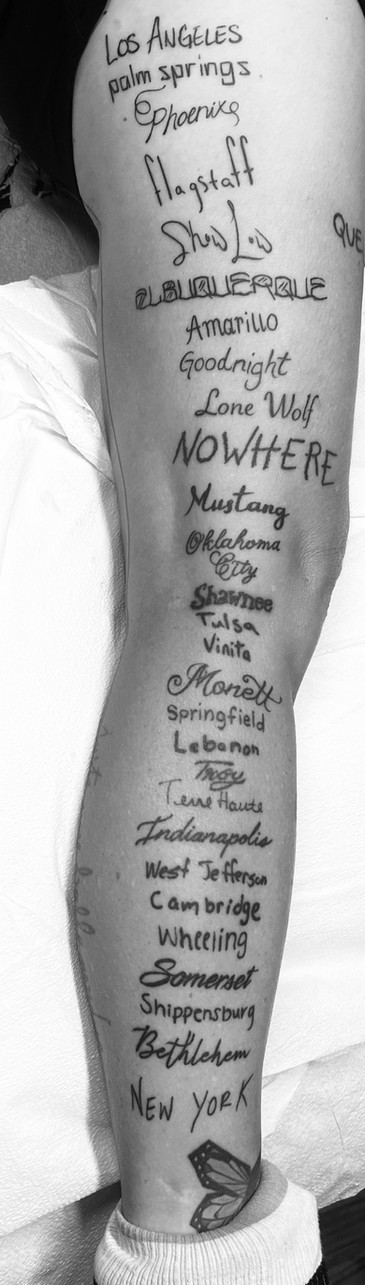 Los Angeles
palm springs
Phoenix
flagstaff
Show Low
QUE
ALBUQUERQUE
Amarillo
Goodnight
Lone Wolf
NOWHERE
Mustang
Oklahoma
City
Shawnee
Tulsa
Vinita
Monett
Springfield
Lebanon
Troy
Terre Haute
Indianapolis
West Jefferson
Cambridge
Wheeling
Somerset
Shippensburg
Bethlehem
NEW YORK